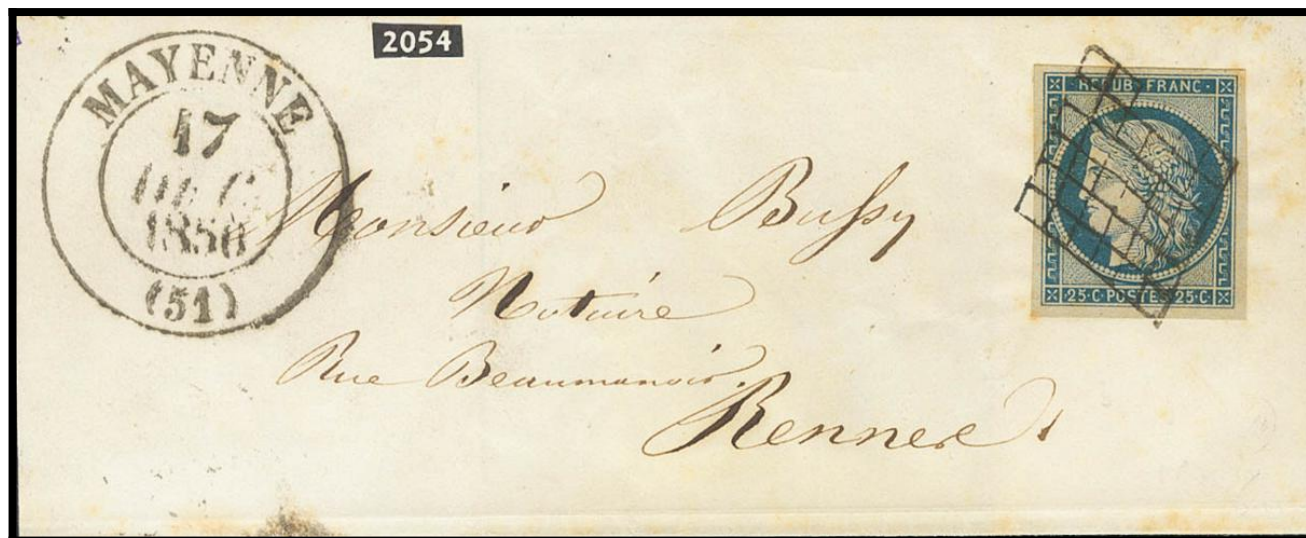 2054
MAYENNE
17
DEC.
1850
(51)
REPUB. FRANC
25·C·POSTES·25·C
Monsieur Bussy
Notaire
Rue Beaumanoir.
Rennes